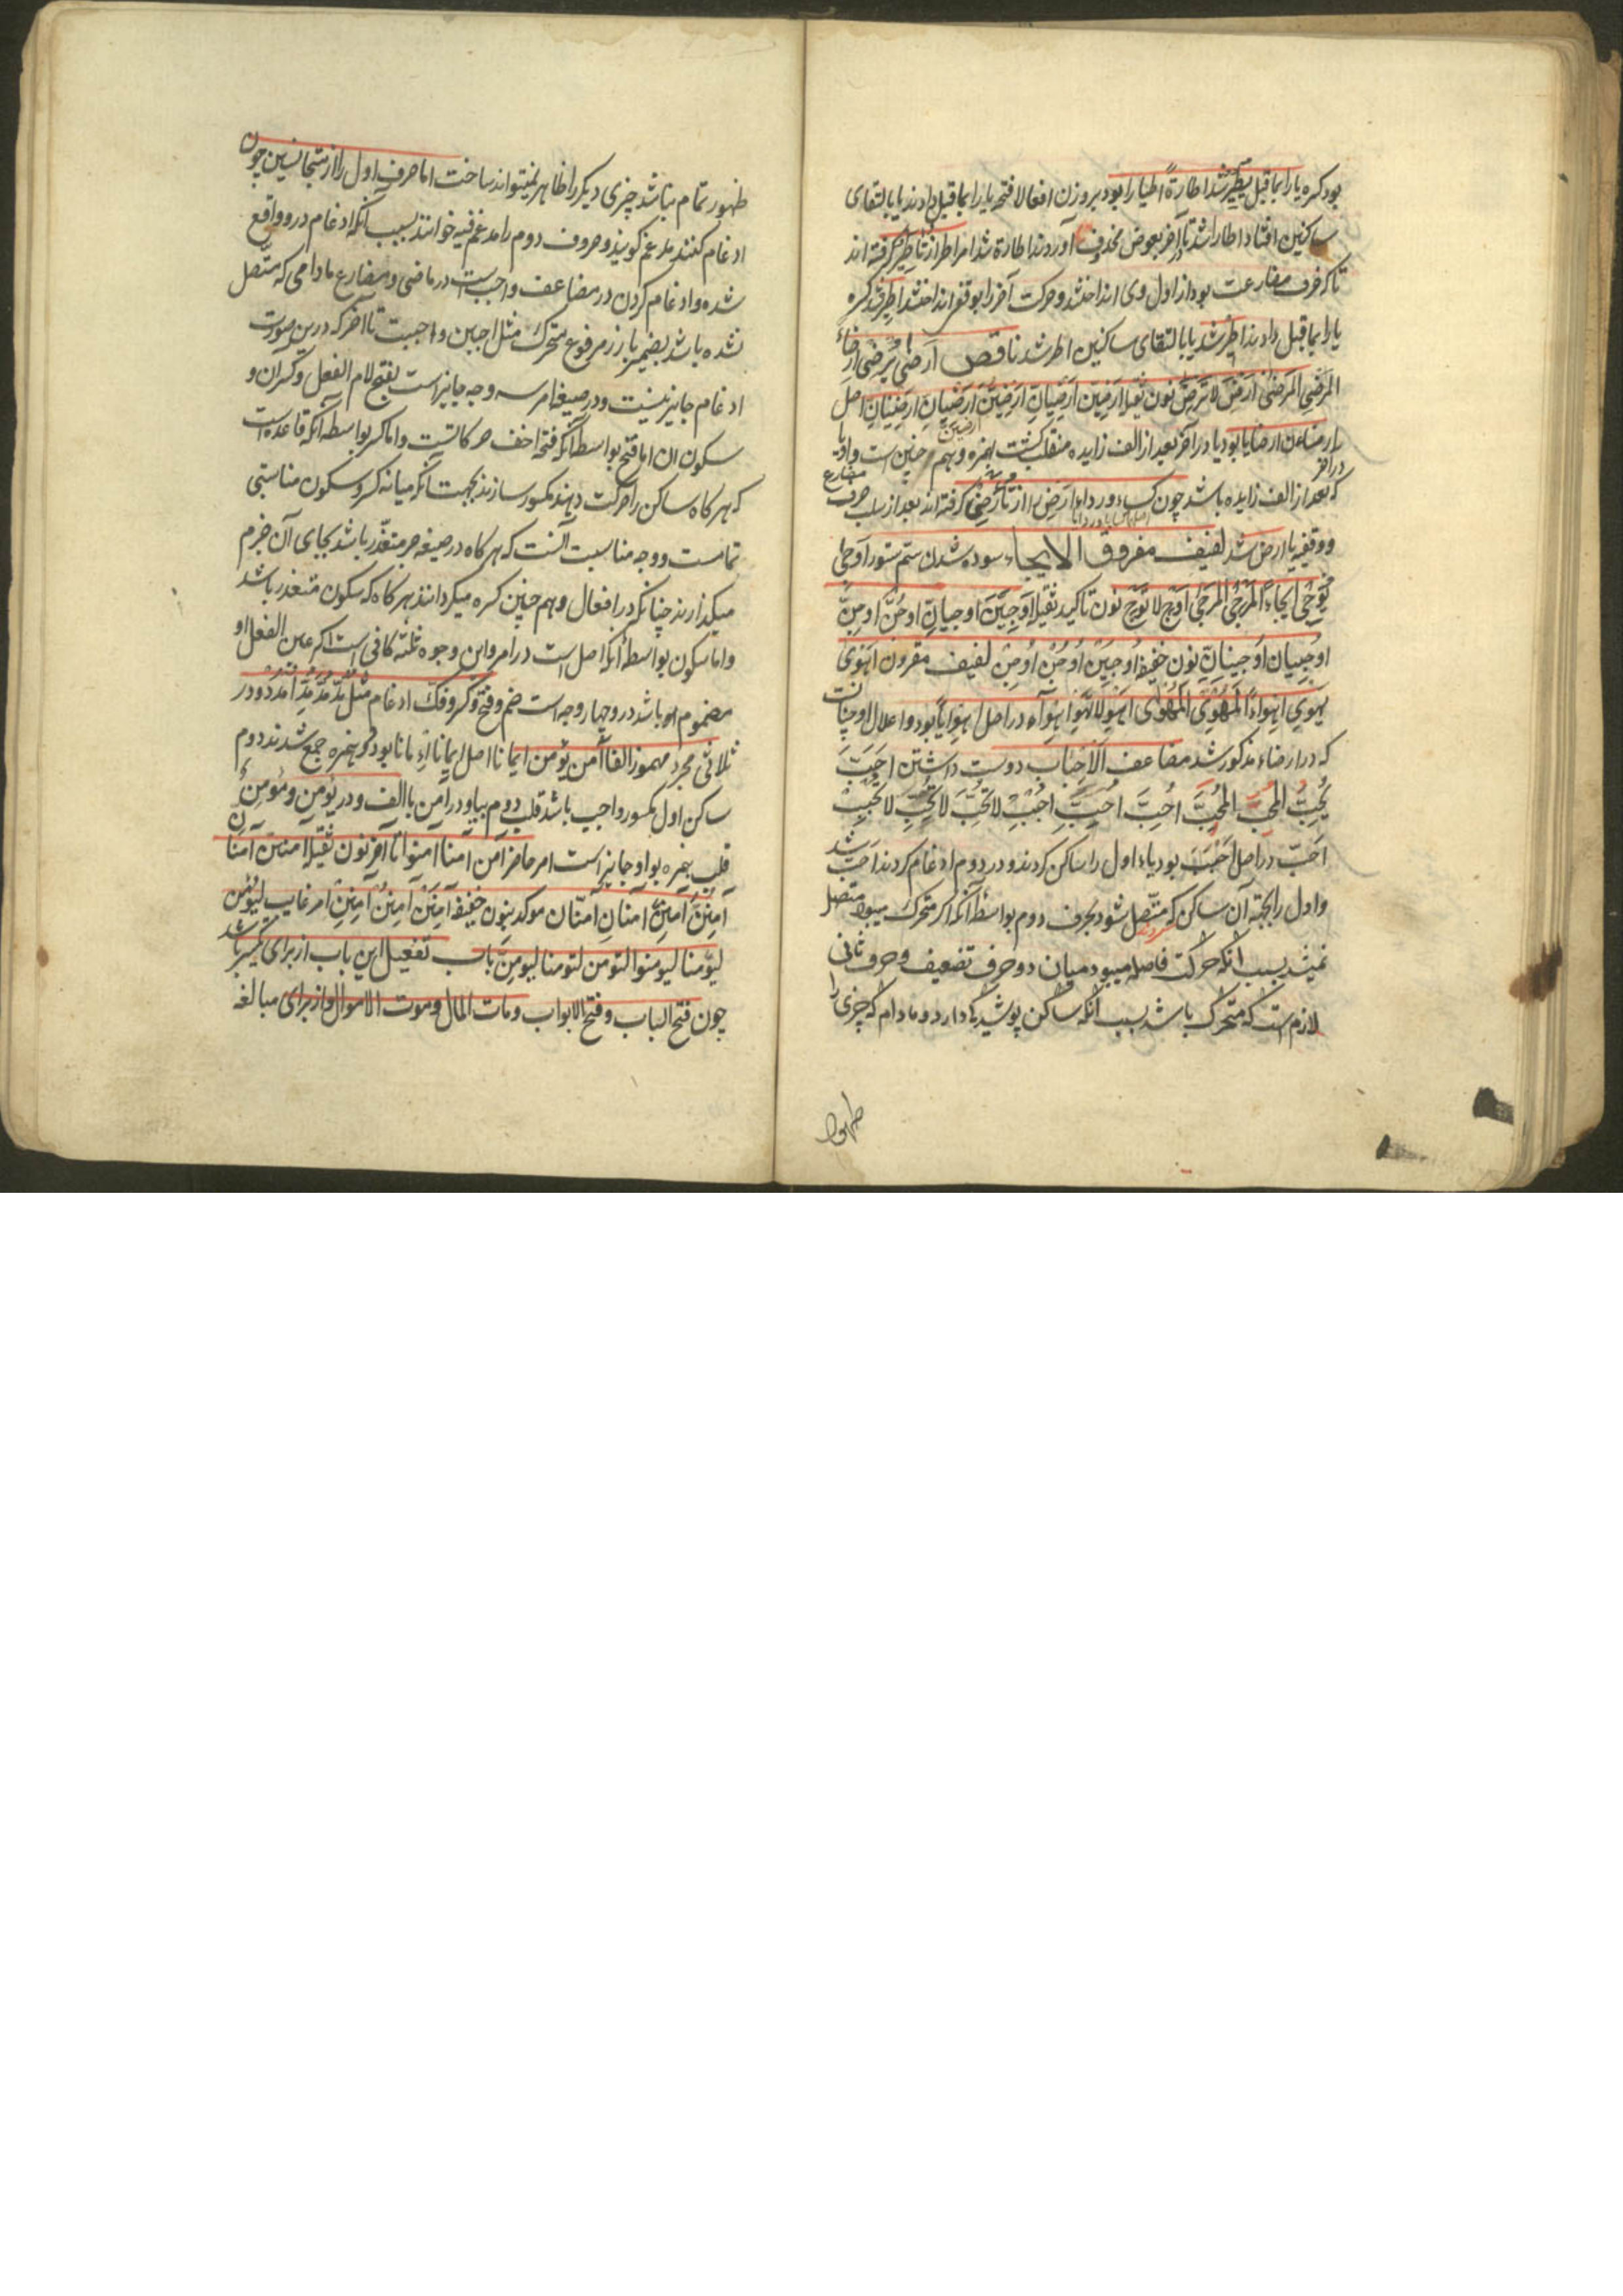 بود کسره یا را بماقبل یطیر شد اطارة اطیارا بود بروزن افعالا فتحه یا را بماقبل دادند یا بالتقای
ساکنین افتاد اطارا شد تا در آخر بعوض محذوف آوردند اطارة شد امر اطر از تاطیر گرفته اند
تا که حرف مضارعت بود از اول وی انداختند و حرکت آخر را بوقفی انداختند اطیر شد کسره
یا را بماقبل دادند اطیر شد یا بالتقای ساکنین اطر شد ناقص ارضی یرضی ارضاء
المرضی المرضی ارض لا ترض نون ثقیله ارضین ارضیان ارضین ارضیان ارضینان اصل
ارضاء ارضایا بود یا در آخر بعد از الف زایده منقلب گشت بهمزه و همچنین است واو یا
که بعد از الف زایده باشد در آخر چون کساء و رداء ارض را از تارضی گرفته اند بعد از سلب حرف مضارع
و وقفیه یا ارض شد لفیف مفروق الایجاء سوده شدن ستم ستور اوجی
یوجی ایجاء الموجی الموجی اوج لا توج نون تاکید ثقیله اوجین اوجیان اوجن اوجن
اوجیان اوجینان نون خفیفه اوجین اوجن اوجن لفیف مقرون اهوی
یهوی اهواء المهوی المهوی اهو لا تهو اهواء در اصل اهوایا بود و اعلال او چنانست
که در ارضاء مذکور شد مضاعف الاحباب دوست داشتن احب
یحب المحب المحب احب احب احبب لا تحب لا تحب لا تحبب
احب در اصل احبب بود باء اول را ساکن کردند و در دوم ادغام کردند احب شد
و اول را بجهة آن ساکن کردند که متصل شود بحرف دوم بواسطه آنکه اگر متحرک میبود متصل
نمیشد بسبب آنکه حرکت فاصله میبود میان دو حرف تضعیف و حرف ثانی
لازم است که متحرک باشد بسبب آنکه ساکن پوشیدگی دارد و مادام که چیزی را
ظهور
ظهور تمام نباشد چیزی دیگر را ظاهر نمیتواند ساخت اما حرف اول را از متجانسین چون
ادغام کنند مدغم گویند و حروف دوم را مدغم فیه خوانند بسبب آنکه ادغام در وی واقع
شده و ادغام کردن در مضاعف واجب است در ماضی و مضارع مادامی که متصل
نشده باشد بضمیر بارز مرفوع متحرک مثل احببن و احببت تا آخر که درین صورت
ادغام جایز نیست و در صیغه امر سه وجه جایز است بفتح لام الفعل و کسران و
سکون ان اما فتح بواسطه آنکه فتحه اخف حرکاتست و اما کسر بواسطه آنکه قاعده است
که هر گاه ساکن را حرکت دهند مکسور سازند بجهت آنکه میانه کسر و سکون مناسبتی
تمامست و وجه مناسبت آنست که هر گاه در صیغه جر متعذر باشد بجای آن جزم
میگذارند چنانکه در افعال و هم چنین کسره میگردانند هر گاه که سکون متعذر باشد
و اما سکون بواسطه آنکه اصل است در امر و این وجوه ثلثه کافی است اگر عین الفعل او
مضموم او باشد درو چهار وجه است ضم و فتح و کسر و فک ادغام مثل مد مد مد امدد و در
ثلاثی مجرد مهموز الفا آمن یؤمن ایمانا اصل ایمانا اءمانا بود دو همزه جمع شدند دوم
ساکن اول مکسور واجب باشد قلب دوم بیا و در آمن با الف و در یؤمن و مؤمن
قلب همزه بواو جایز است امر حاضر آمن آمنا آمنوا تا آخر نون ثقیله آمنن آمنان
آمنن آمنن آمنان آمنان موکد بنون خفیفه آمنن آمنن آمنن امر غایب لیؤمن
لیؤمنا لیؤمنوا لتؤمن لتؤمنا لیؤمن باب تفعیل این باب از برای تکثیر باشد
چون فتح الباب و فتح الابواب و مات المال و موت الاموال و از برای مبالغه